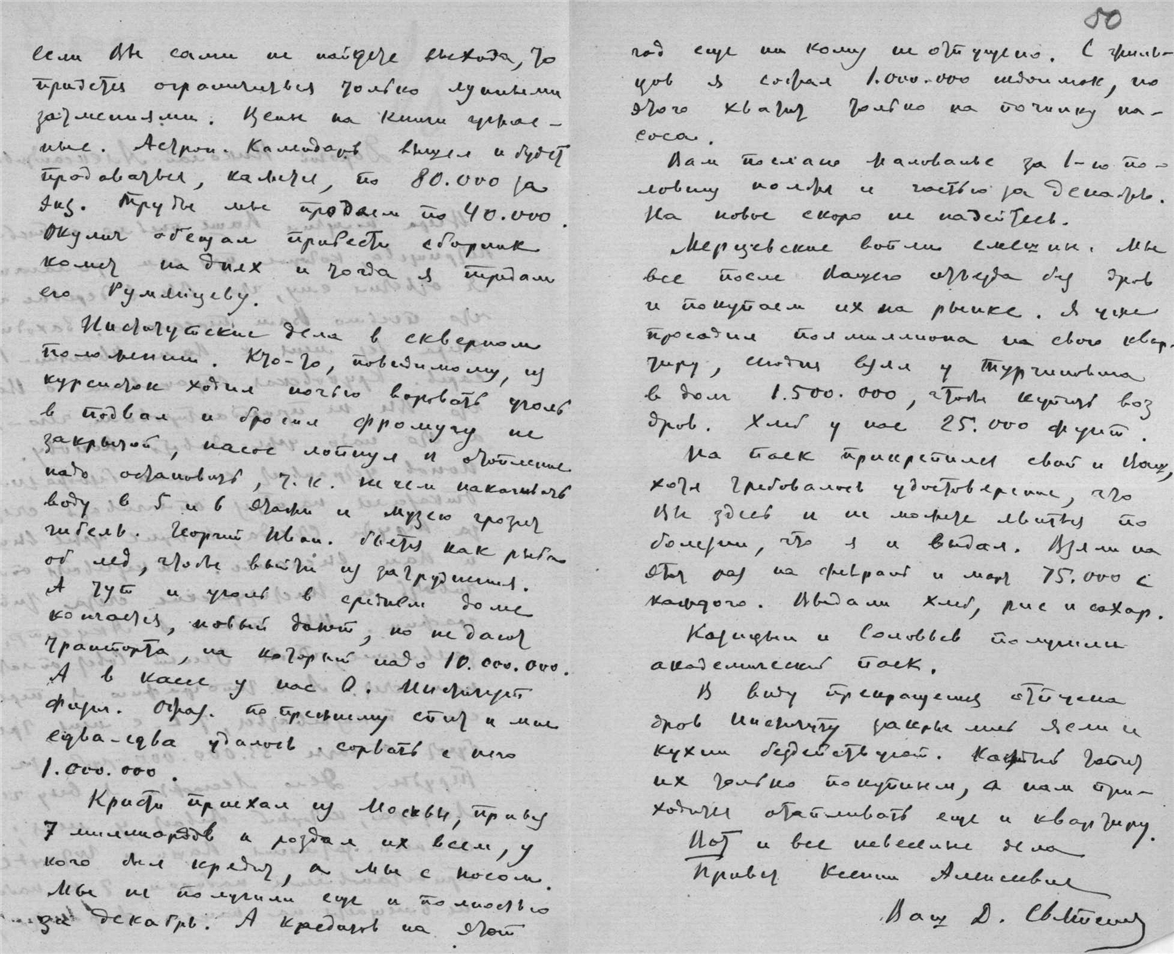 если Вы сами не найдете выхода, то
придется ограничиться только лунными
затмениями. Цены на книги ужас-
ные. Астрон. Календарь вышел и будет
продаваться, кажется, по 80.000 за
экз. Труды мы продаем по 40.000.
Окулич обещал привести сборник
комет на днях и тогда я передам
его Румянцеву.
Институтские дела в скверном
положении. Кто-то, повидимому, из
курсисток ходил ночью воровать уголь
в подвал и бросил фрамугу не
закрытой, насос лопнул и отопление
надо остановить, т.к. нечем накачивать
воду в 5 и 6 этажи и музею грозит
гибель. Георгий Иван. бьется как рыба
об лед, чтобы выйти из затруднения.
А тут и уголь в среднем доме
кончается, новый дают, но не дают
транспорта, на который надо 10.000.000.
А в кассе у нас 0. Институт
Физич. Образ. по прежнему спит и мне
едва-едва удалось сорвать с него
1.000.000.
Кристи приехал из Москвы, привез
7 миллиардов и роздал их всем, у
кого был кредит, а мы с носом.
Мы не получили еще и полностью
за декабрь. А кредитов на этот
50
год еще ни кому не отпущено. С
я собрал 1.000.000 недоимок, но
этого хватит только на починку на-
соса.
Вам послано жалованье за 1-ю по-
ловину ноября и частью за декабрь.
На новое скоро не надейтесь.
вошли в
все после Вашего отъезда без дров
и покупаем их на рынке. Я уже
просадил полмиллиона на свою квар-
тиру, сегодня взял у Турчиновича
в долг 1.500.000, чтобы купить воз
дров. Хлеб у нас 25.000 фунт.
На паек прикрепился свой и Ваш,
хотя требовалось удостоверение, что
Вы здесь и не можете явиться по
болезни, что я и выдал. Взяли на
этот раз на февраль и март 75.000 с
каждого. Выдали хлеб, рис и сахар.
Казицын и Соловьев получили
академический паек.
В виду прекращения отпуска
дров Институту закрылись ясли и
кухни бездействуют. Каждый топит
их только покупным, а нам при-
ходится отапливать еще и квартиру.
Вот и все невеселые дела
Привет Ксении Алексеевне
Ваш Д. Святский